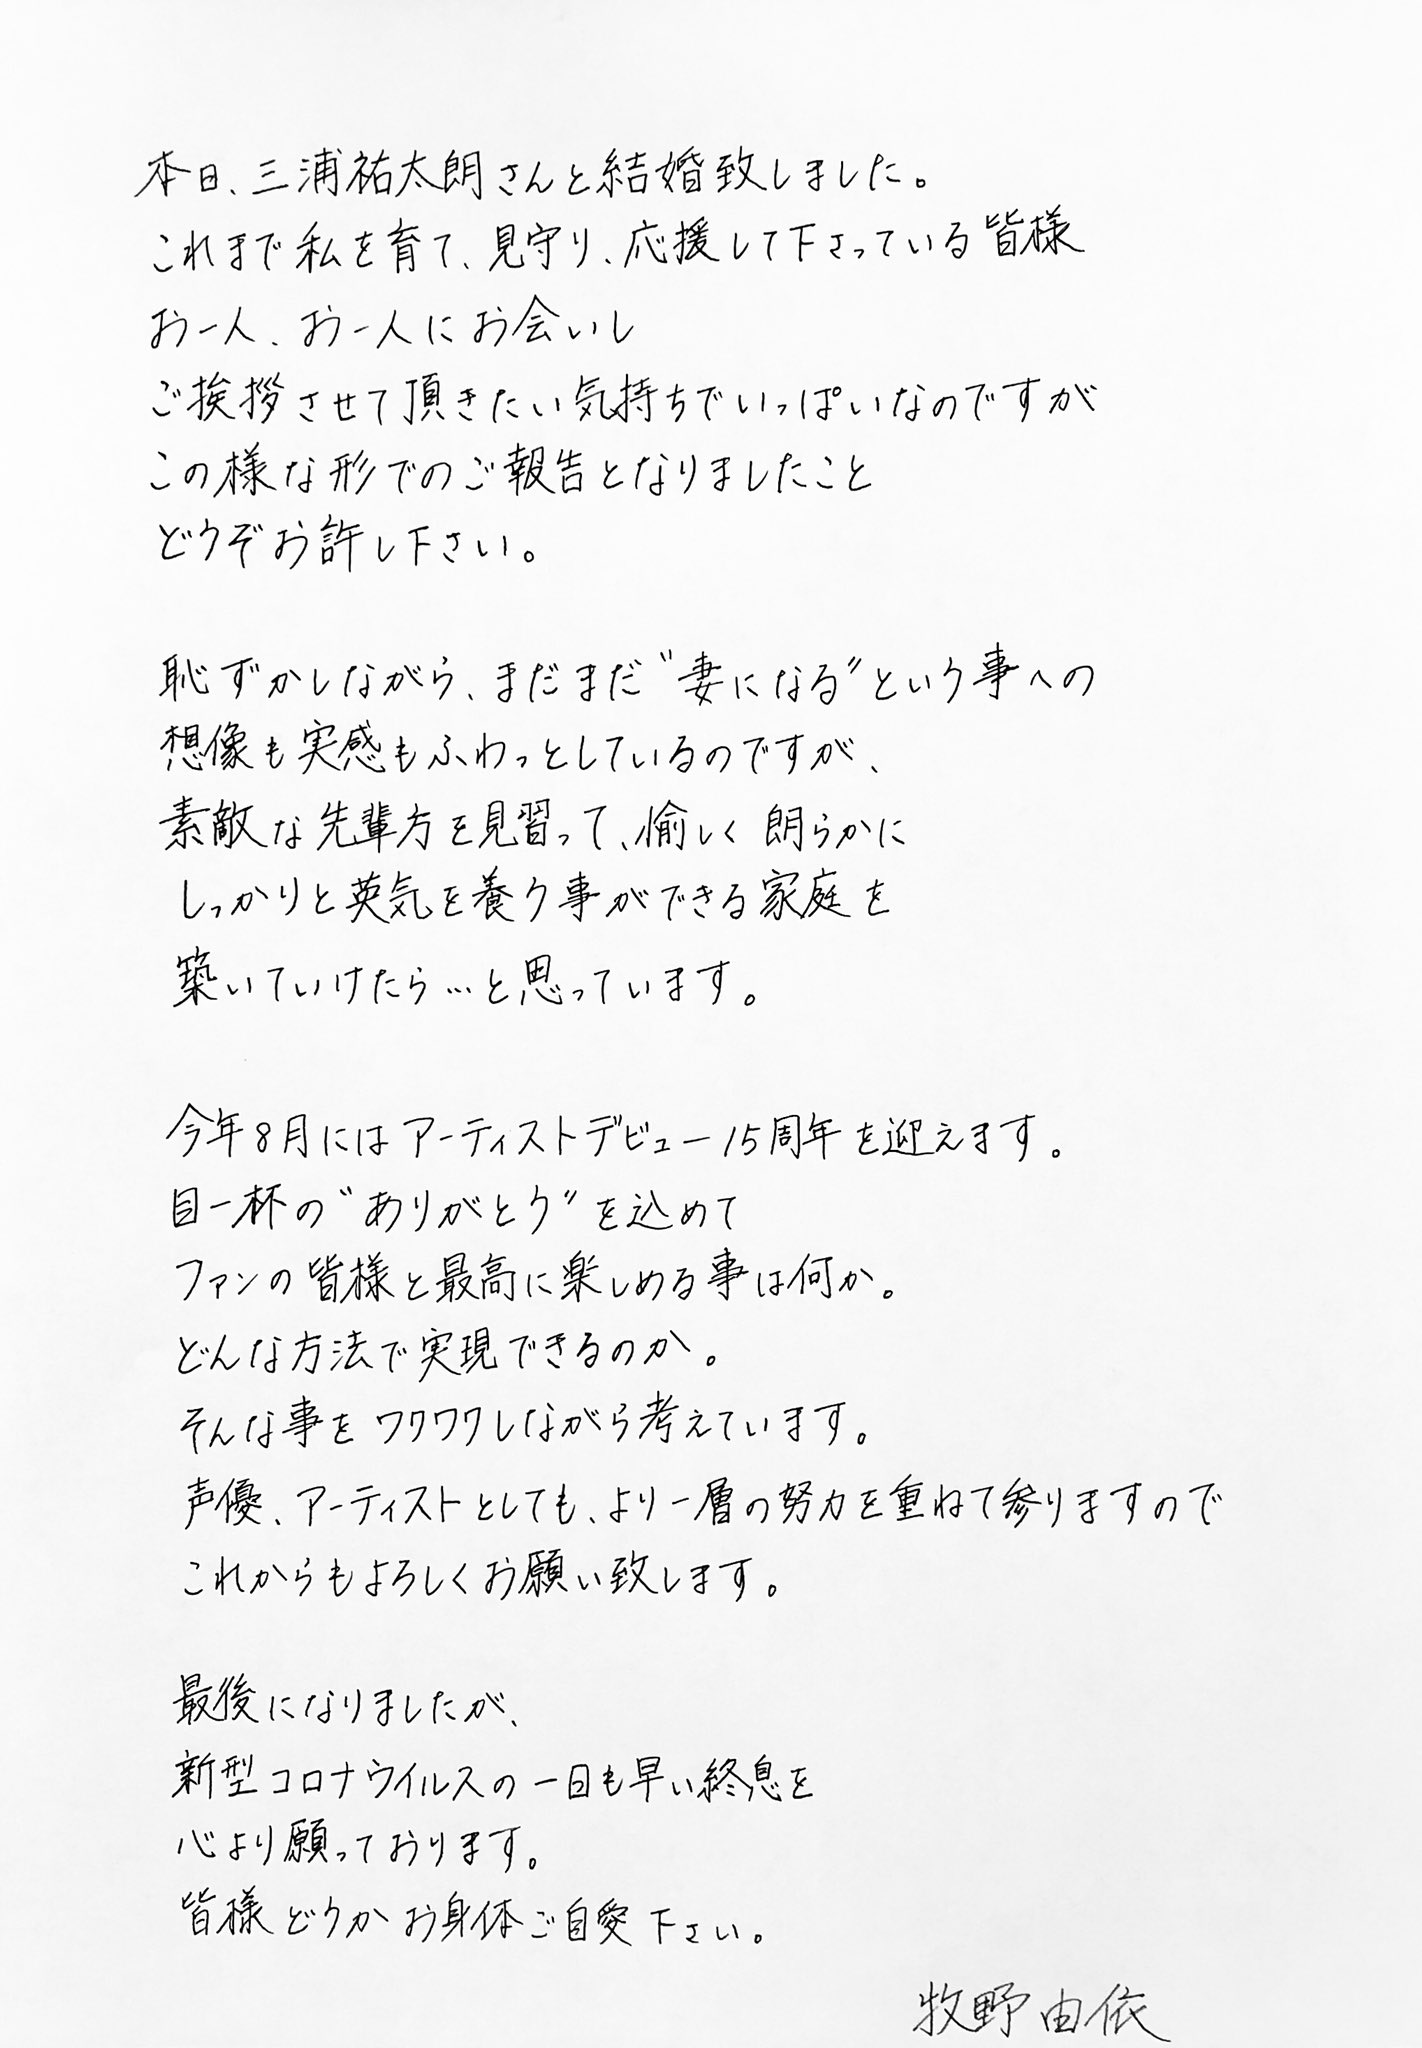 本日、三浦祐太朗さんと結婚致しました。
これまで私を育て、見守り、応援して下さっている皆様
お一人、お一人にお会いし
ご挨拶させて頂きたい気持ちでいっぱいなのですが
この様な形でのご報告となりましたこと
どうぞお許し下さい。
恥ずかしながら、まだまだ“妻になる”という事への
想像も実感もふわっとしているのですが、
素敵な先輩方を見習って、愉しく朗らかに
しっかりと英気を養う事ができる家庭を
築いていけたら…と思っています。
今年8月にはアーティストデビュー15周年を迎えます。
目一杯の“ありがとう”を込めて
ファンの皆様と最高に楽しめる事は何か。
どんな方法で実現できるのか。
そんな事をワクワクしながら考えています。
声優、アーティストとしても、より一層の努力を重ねて参りますので
これからもよろしくお願い致します。
最後になりましたが、
新型コロナウイルスの一日も早い終息を
心より願っております。
皆様どうかお身体ご自愛下さい。
牧野由依